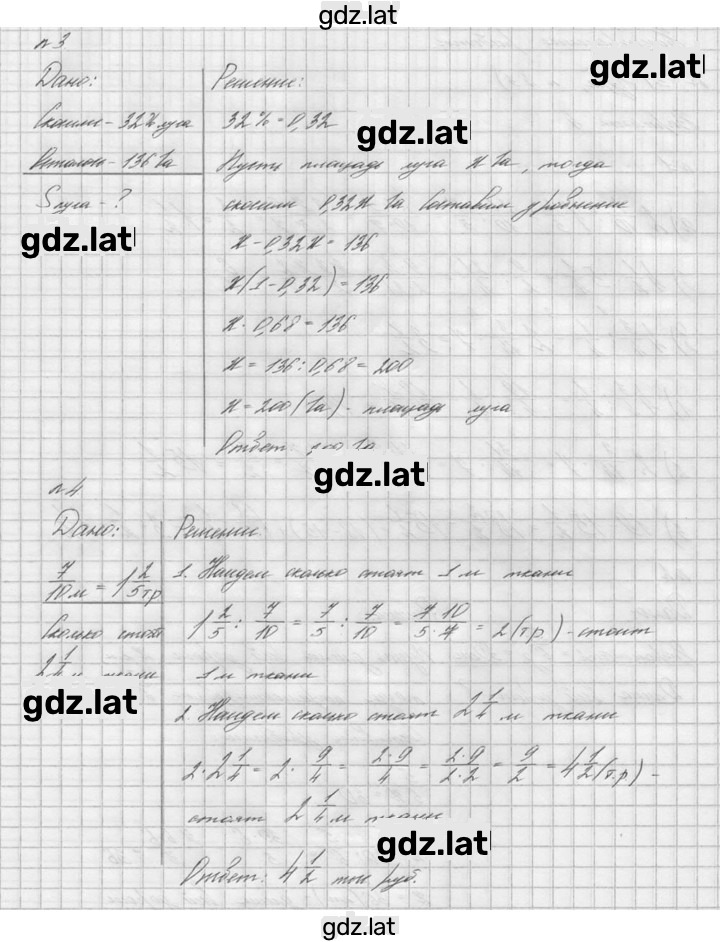 gdz.lat
n 3
gdz.lat
Дано:
Скосили - 32% луга
Осталось - 136 га
S луга - ?
gdz.lat
Решение:
32% = 0,32
gdz.lat
Пусть площадь луга x га, тогда
скосили 0,32x га Составим уравнение
x - 0,32x = 136
x(1 - 0,32) = 136
x · 0,68 = 136
x = 136 : 0,68 = 200
x = 200 (га) - площадь луга
Ответ: 200 га
gdz.lat
n 4
Дано:
7/10 м = 1 2/5 тр
Сколько стоит
2 1/4 м ткани
gdz.lat
Решение:
1. Найдем сколько стоит 1 м ткани
1 2/5 : 7/10 = 7/5 : 7/10 = 7·10/5·7 = 2 (т.р) - стоит
1 м ткани
2. Найдем сколько стоят 2 1/4 м ткани
2 · 2 1/4 = 2 · 9/4 = 2·9/4 = 2·9/2·2 = 9/2 = 4 1/2 (т.р) -
стоят 2 1/4 м ткани
gdz.lat
Ответ: 4 1/2 тыс. руб.
gdz.lat